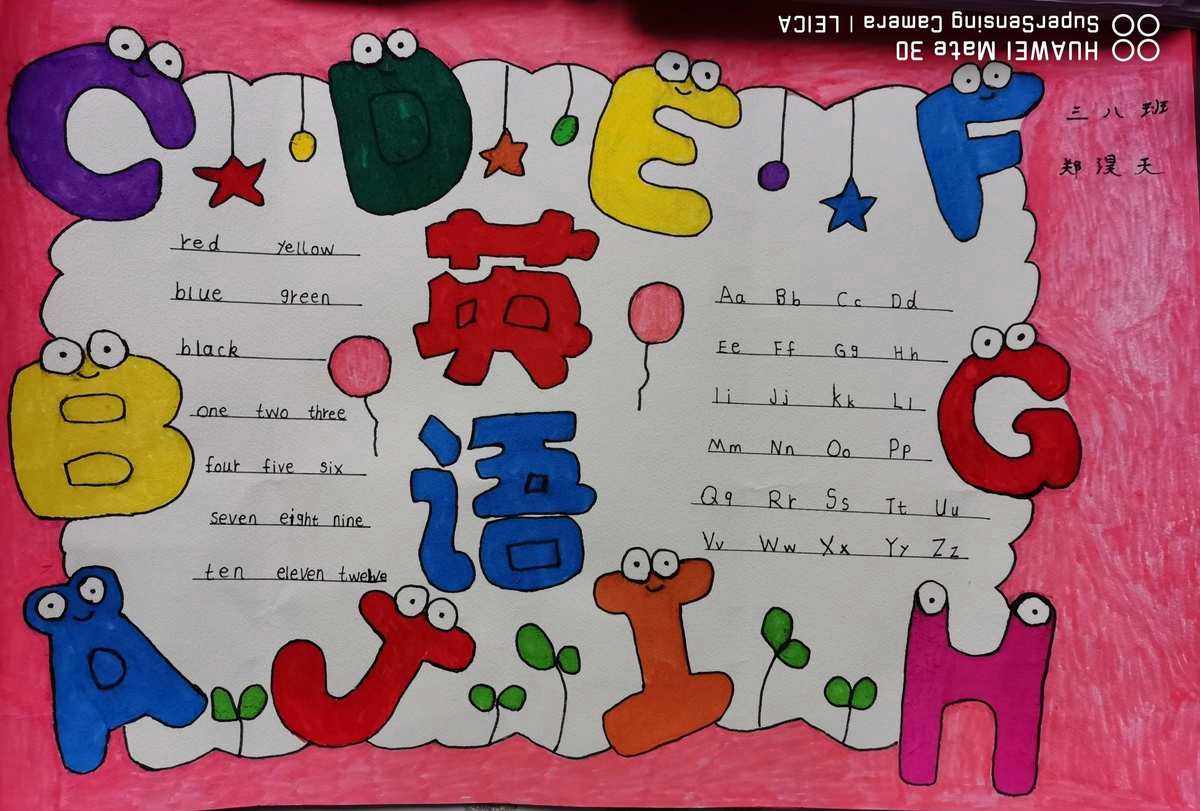 HUAWEI Mate 30
SuperSensing Camera | LEICA
C D E F
三 八 班
B
A J I H
G
英
语
red yellow
blue green
black
one two three
four five six
seven eight nine
ten eleven twelve
Aa Bb Cc Dd
Ee Ff Gg Hh
Ii Jj Kk Ll
Mm Nn Oo Pp
Qq Rr Ss Tt Uu
Vv Ww Xx Yy Zz